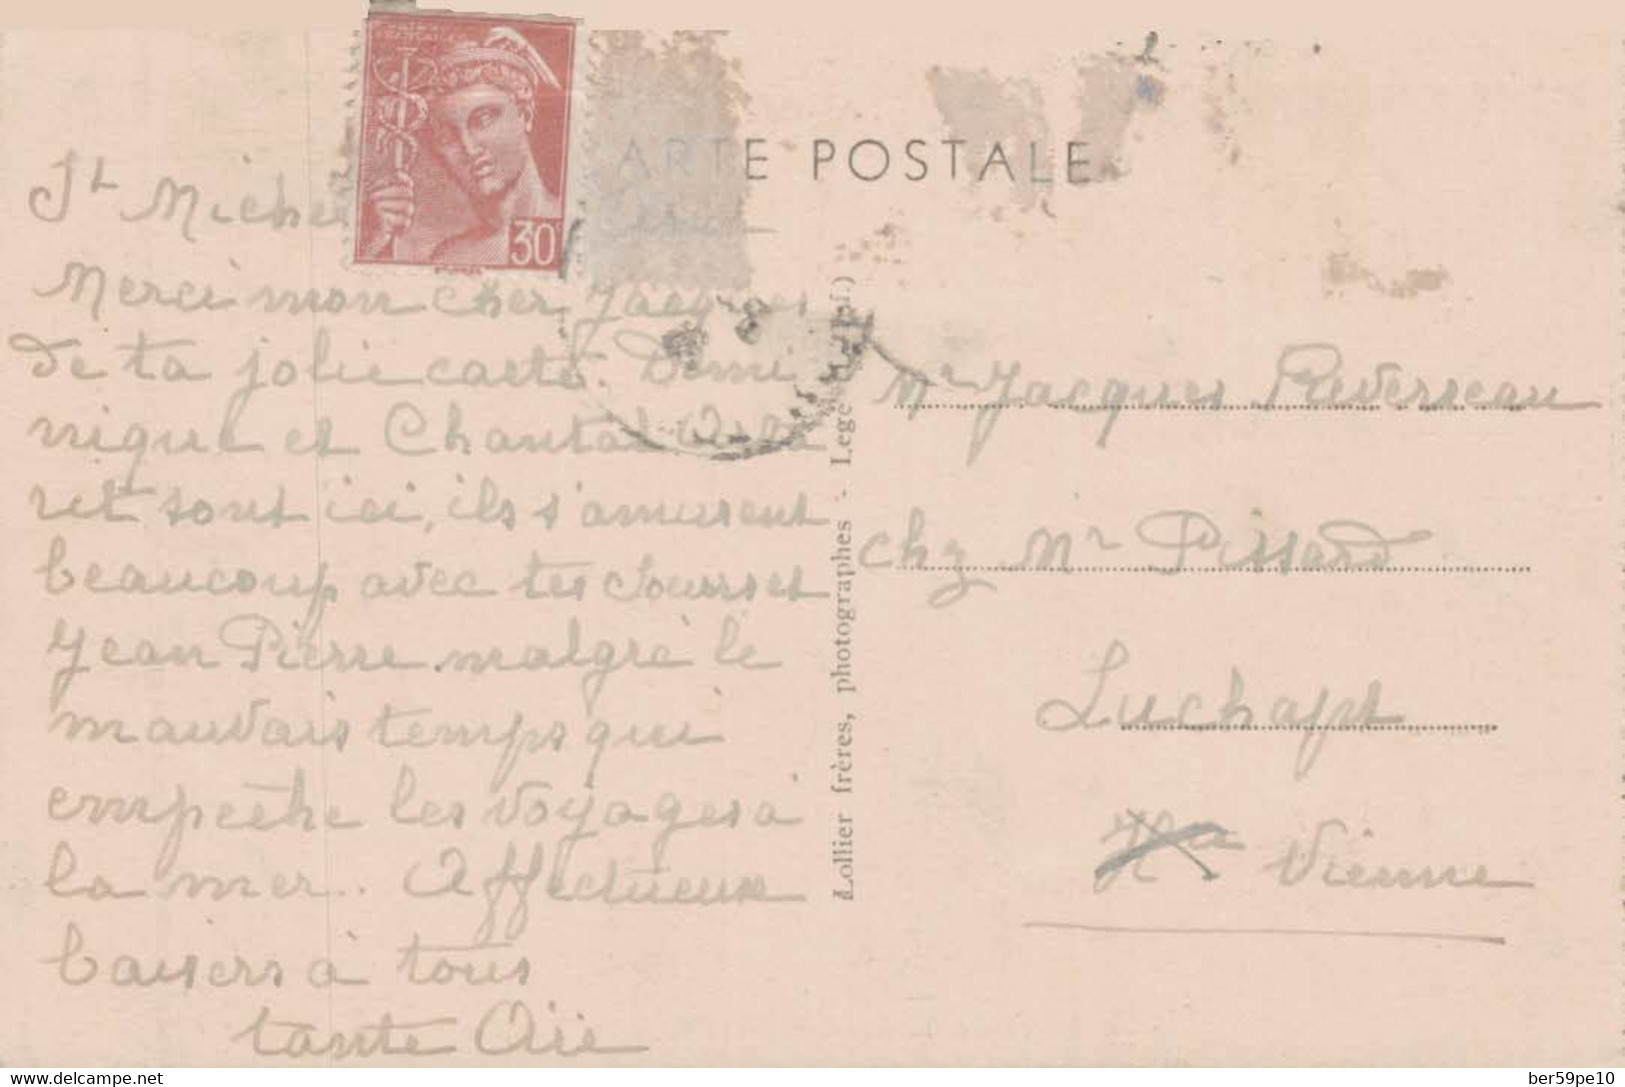 CARTE POSTALE
FRANÇAISES
30
St Michel
Merci mon cher Jacques
de ta jolie carte. Domi
nique et Chantal
ret sont ici, ils s'amusent
beaucoup avec tes soeurs et
Jean Pierre malgré le
mauvais temps qui
empêche les voyages à
la mer. Affectueux
baisers à tous
tante
Lollier frères, photographes - Legé
Mr Jacques Reverseau
chz Mr Pissard
Luchapt
Vienne
www.delcampe.net
ber59pe10